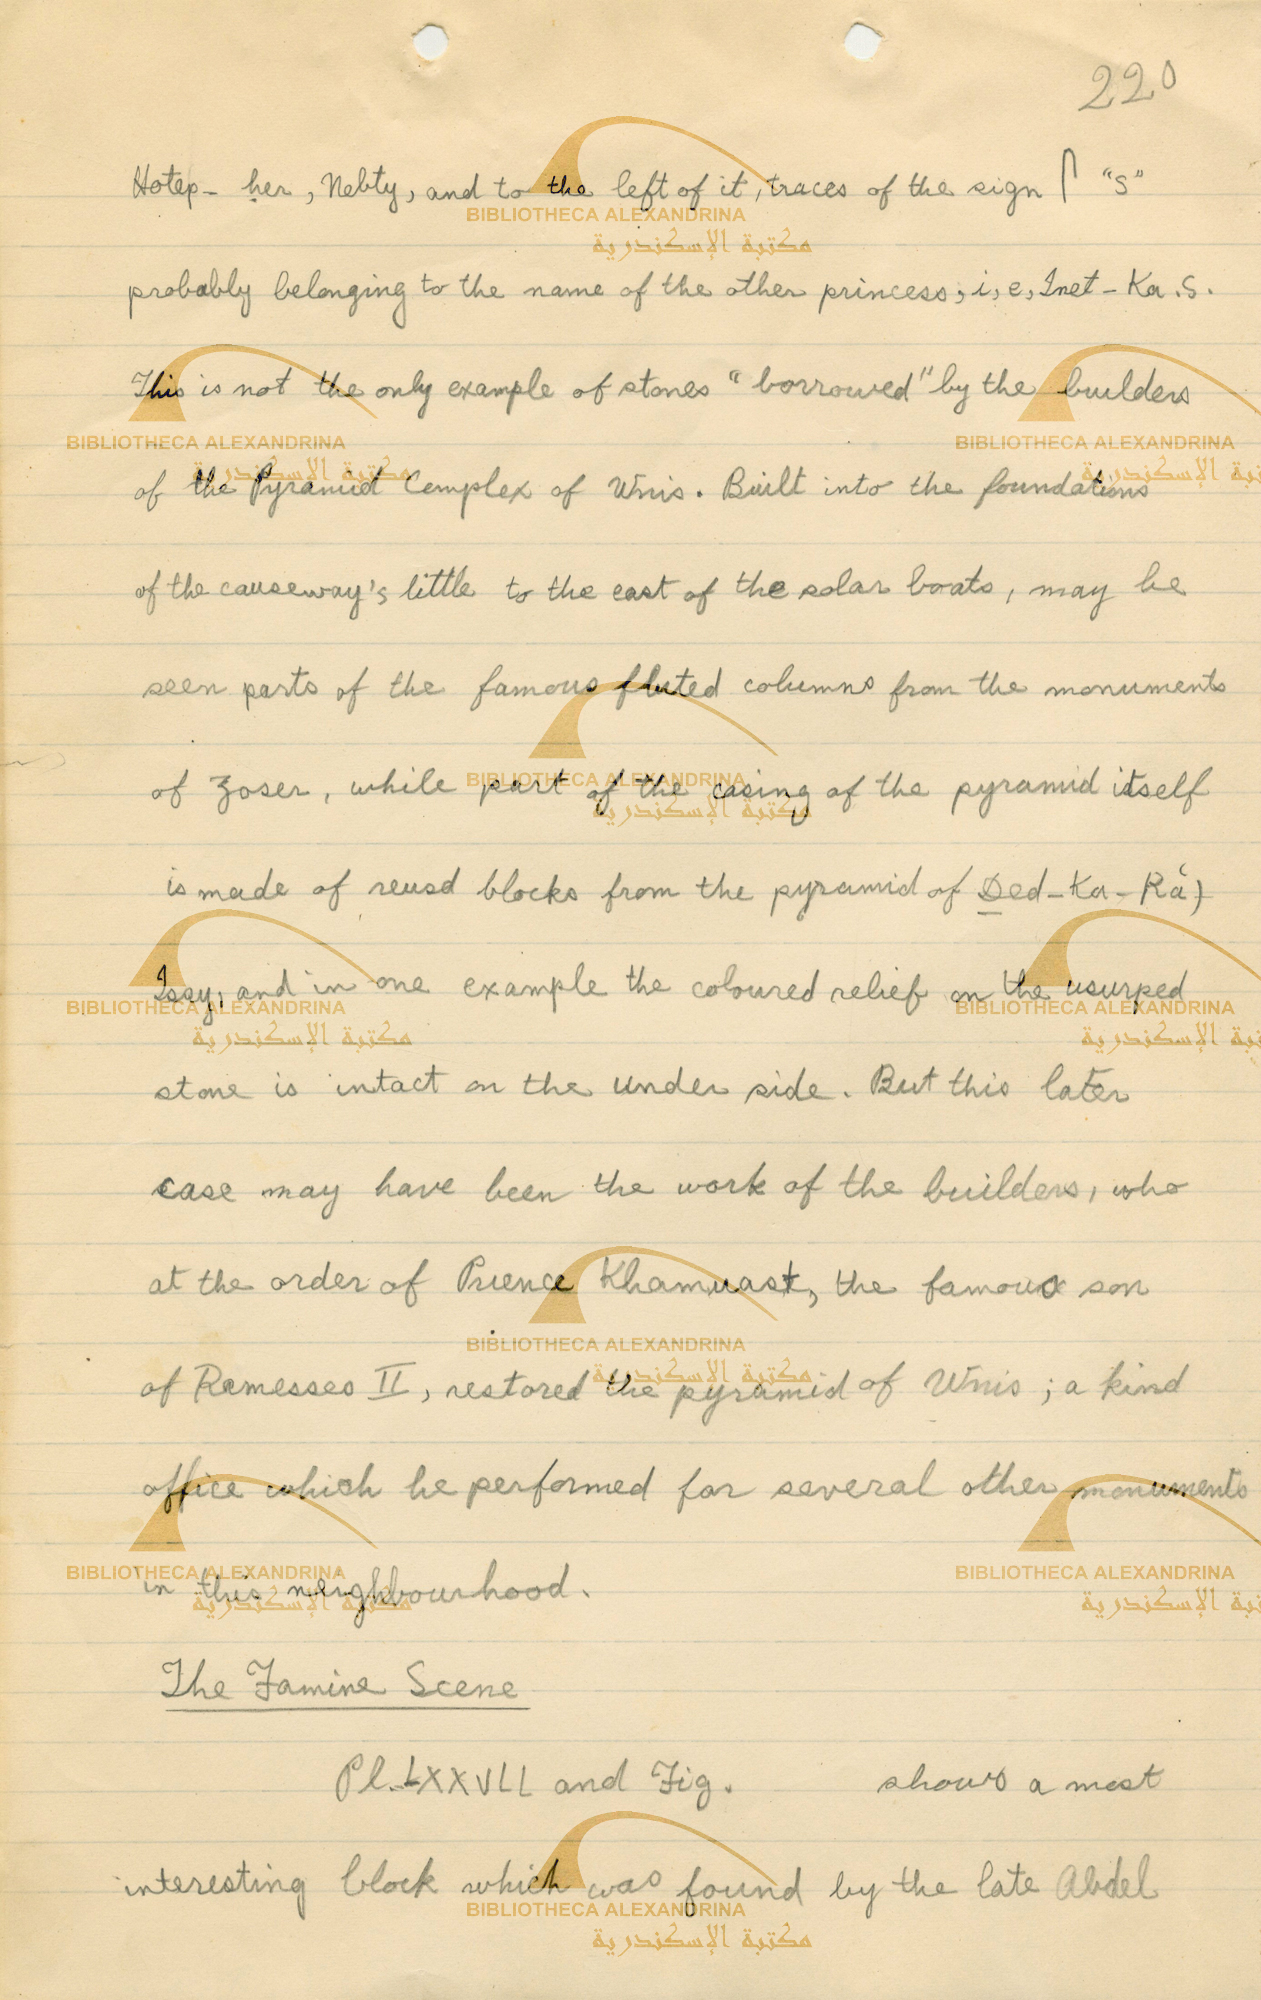 220
Hotep-ḥer, Nebty, and to the left of it, traces of the sign ⌈ "S"
probably belonging to the name of the other princess, i,e, Inet-Ka.S.
This is not the only example of stones "borrowed" by the builders
of the Pyramid Complex of Wnis. Built into the foundations
of the causeway's little to the east of the solar boats, may be
seen parts of the famous fluted columns from the monuments
of Zoser, while part of the casing of the pyramid itself
is made of reusd blocks from the pyramid of Ḏed-Ka-Rá)
Issy, and in one example the coloured relief on the usurped
stone is intact on the under side. But this later
case may have been the work of the builders, who
at the order of Prience Khamuast, the famous son
of Ramesses II, restored the pyramid of Wnis; a kind
office which he performed for several other monuments
in this neighbourhood.
The Famine Scene
Pl. LXXVLL and Fig. shows a most
interesting block which was found by the late Abdel
BIBLIOTHECA ALEXANDRINA
مكتبة الإسكندرية